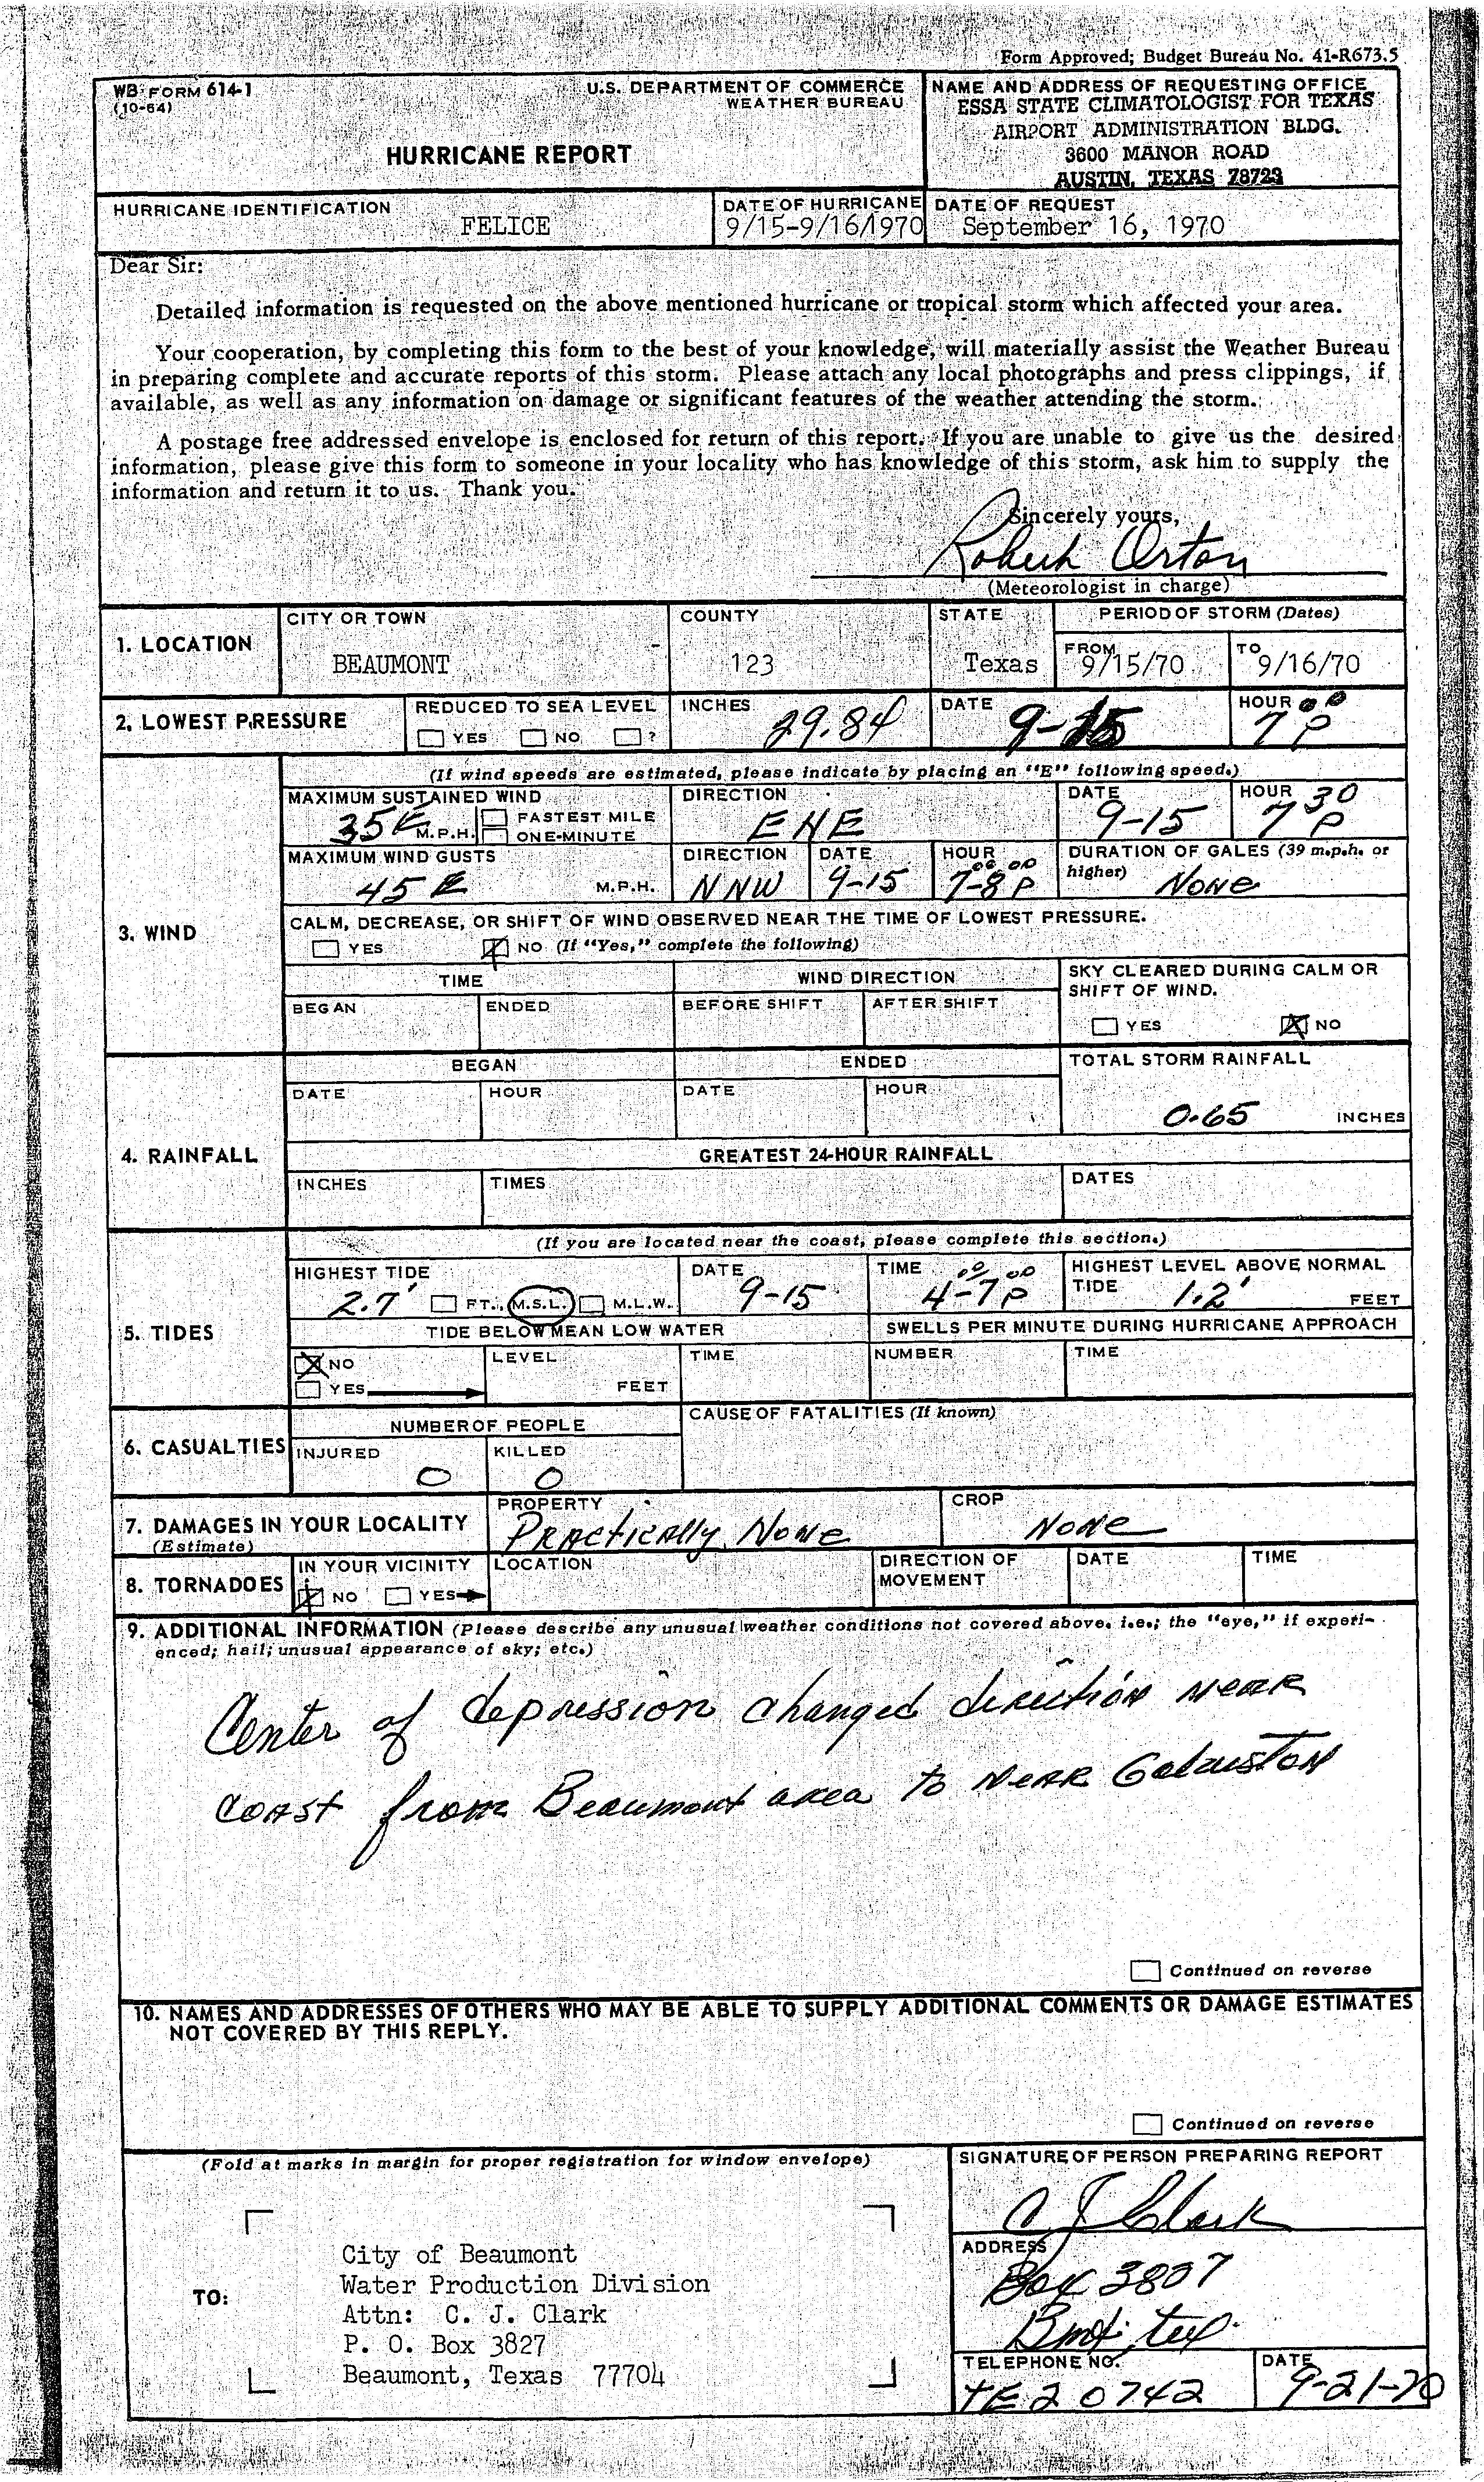 Form Approved; Budget Bureau No. 41-R673.5
WB FORM 614-1
(10-64)
U.S. DEPARTMENT OF COMMERCE
WEATHER BUREAU
HURRICANE REPORT
NAME AND ADDRESS OF REQUESTING OFFICE
ESSA STATE CLIMATOLOGIST FOR TEXAS
AIRPORT ADMINISTRATION BLDG.
3600 MANOR ROAD
AUSTIN, TEXAS 78723
HURRICANE IDENTIFICATION
FELICE
DATE OF HURRICANE
9/15-9/16/1970
DATE OF REQUEST
September 16, 1970
Dear Sir:
Detailed information is requested on the above mentioned hurricane or tropical storm which affected your area.
Your cooperation, by completing this form to the best of your knowledge, will materially assist the Weather Bureau
in preparing complete and accurate reports of this storm. Please attach any local photographs and press clippings, if
available, as well as any information on damage or significant features of the weather attending the storm.
A postage free addressed envelope is enclosed for return of this report. If you are unable to give us the desired
information, please give this form to someone in your locality who has knowledge of this storm, ask him to supply the
information and return it to us. Thank you.
Sincerely yours,
Robert Orton
(Meteorologist in charge)
1. LOCATION
CITY OR TOWN
BEAUMONT
COUNTY
123
STATE
Texas
PERIOD OF STORM (Dates)
FROM 9/15/70
TO 9/16/70
2. LOWEST PRESSURE
REDUCED TO SEA LEVEL
YES NO ?
INCHES 29.84
DATE 9-15
HOUR 7 00 P
3. WIND
(If wind speeds are estimated, please indicate by placing an "E" following speed.)
MAXIMUM SUSTAINED WIND
35 E M.P.H.
FASTEST MILE
ONE-MINUTE
DIRECTION
ENE
DATE
9-15
HOUR
7 30 P
MAXIMUM WIND GUSTS
45 E M.P.H.
DIRECTION
NNW
DATE
9-15
HOUR
7 00-8 00 P
DURATION OF GALES (39 m.p.h. or
higher) None
CALM, DECREASE, OR SHIFT OF WIND OBSERVED NEAR THE TIME OF LOWEST PRESSURE.
YES X NO (If "Yes," complete the following)
TIME
WIND DIRECTION
SKY CLEARED DURING CALM OR
SHIFT OF WIND.
BEGAN ENDED BEFORE SHIFT AFTER SHIFT
YES X NO
4. RAINFALL
BEGAN
ENDED
TOTAL STORM RAINFALL
DATE HOUR DATE HOUR
0.65 INCHES
GREATEST 24-HOUR RAINFALL
INCHES TIMES DATES
5. TIDES
(If you are located near the coast, please complete this section.)
HIGHEST TIDE
2.7' FT., M.S.L. M.L.W.
DATE
9-15
TIME
4 00-7 00 P
HIGHEST LEVEL ABOVE NORMAL
TIDE 1.2' FEET
TIDE BELOW MEAN LOW WATER
SWELLS PER MINUTE DURING HURRICANE APPROACH
X NO
YES
LEVEL
FEET
TIME
NUMBER
TIME
6. CASUALTIES
NUMBER OF PEOPLE
INJURED
0
KILLED
0
CAUSE OF FATALITIES (If known)
7. DAMAGES IN YOUR LOCALITY
(Estimate)
PROPERTY
Practically None
CROP
None
8. TORNADOES
IN YOUR VICINITY
X NO YES
LOCATION
DIRECTION OF
MOVEMENT
DATE
TIME
9. ADDITIONAL INFORMATION (Please describe any unusual weather conditions not covered above, i.e.; the "eye," if experi-
enced; hail; unusual appearance of sky; etc.)
Center of depression changed direction near
coast from Beaumont area to near Galveston
Continued on reverse
10. NAMES AND ADDRESSES OF OTHERS WHO MAY BE ABLE TO SUPPLY ADDITIONAL COMMENTS OR DAMAGE ESTIMATES
NOT COVERED BY THIS REPLY.
Continued on reverse
(Fold at marks in margin for proper registration for window envelope)
TO:
City of Beaumont
Water Production Division
Attn: C. J. Clark
P. O. Box 3827
Beaumont, Texas 77704
SIGNATURE OF PERSON PREPARING REPORT
C J Clark
ADDRESS
Box 3807
Bmt. tex.
TELEPHONE NO.
TE 2 0742
DATE
9-21-70